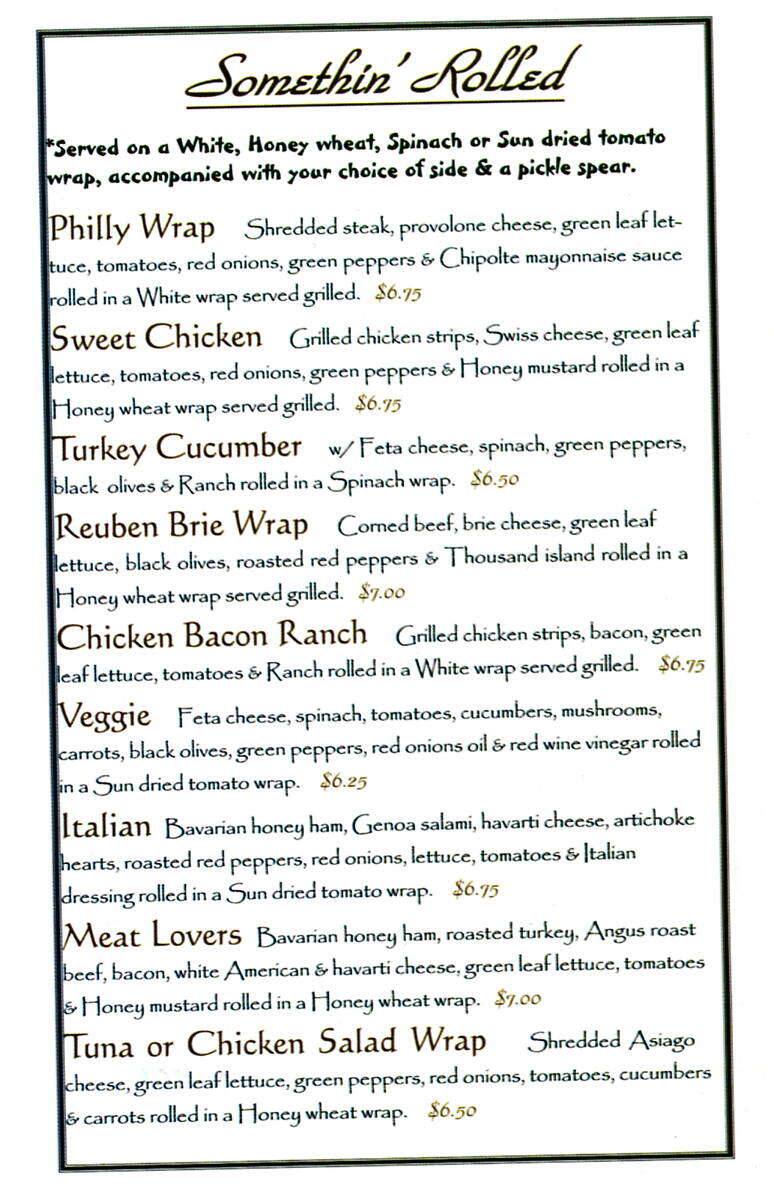 Somethin' Rolled
*Served on a White, Honey wheat, Spinach or Sun dried tomato
wrap, accompanied with your choice of side & a pickle spear.
Philly Wrap Shredded steak, provolone cheese, green leaf let-
tuce, tomatoes, red onions, green peppers & Chipolte mayonnaise sauce
rolled in a White wrap served grilled. $6.75
Sweet Chicken Grilled chicken strips, Swiss cheese, green leaf
lettuce, tomatoes, red onions, green peppers & Honey mustard rolled in a
Honey wheat wrap served grilled. $6.75
Turkey Cucumber w/ Feta cheese, spinach, green peppers,
black olives & Ranch rolled in a Spinach wrap. $6.50
Reuben Brie Wrap Corned beef, brie cheese, green leaf
lettuce, black olives, roasted red peppers & Thousand island rolled in a
Honey wheat wrap served grilled. $7.00
Chicken Bacon Ranch Grilled chicken strips, bacon, green
leaf lettuce, tomatoes & Ranch rolled in a White wrap served grilled. $6.75
Veggie Feta cheese, spinach, tomatoes, cucumbers, mushrooms,
carrots, black olives, green peppers, red onions oil & red wine vinegar rolled
in a Sun dried tomato wrap. $6.25
Italian Bavarian honey ham, Genoa salami, havarti cheese, artichoke
hearts, roasted red peppers, red onions, lettuce, tomatoes & Italian
dressing rolled in a Sun dried tomato wrap. $6.75
Meat Lovers Bavarian honey ham, roasted turkey, Angus roast
beef, bacon, white American & havarti cheese, green leaf lettuce, tomatoes
& Honey mustard rolled in a Honey wheat wrap. $7.00
Tuna or Chicken Salad Wrap Shredded Asiago
cheese, green leaf lettuce, green peppers, red onions, tomatoes, cucumbers
& carrots rolled in a Honey wheat wrap. $6.50